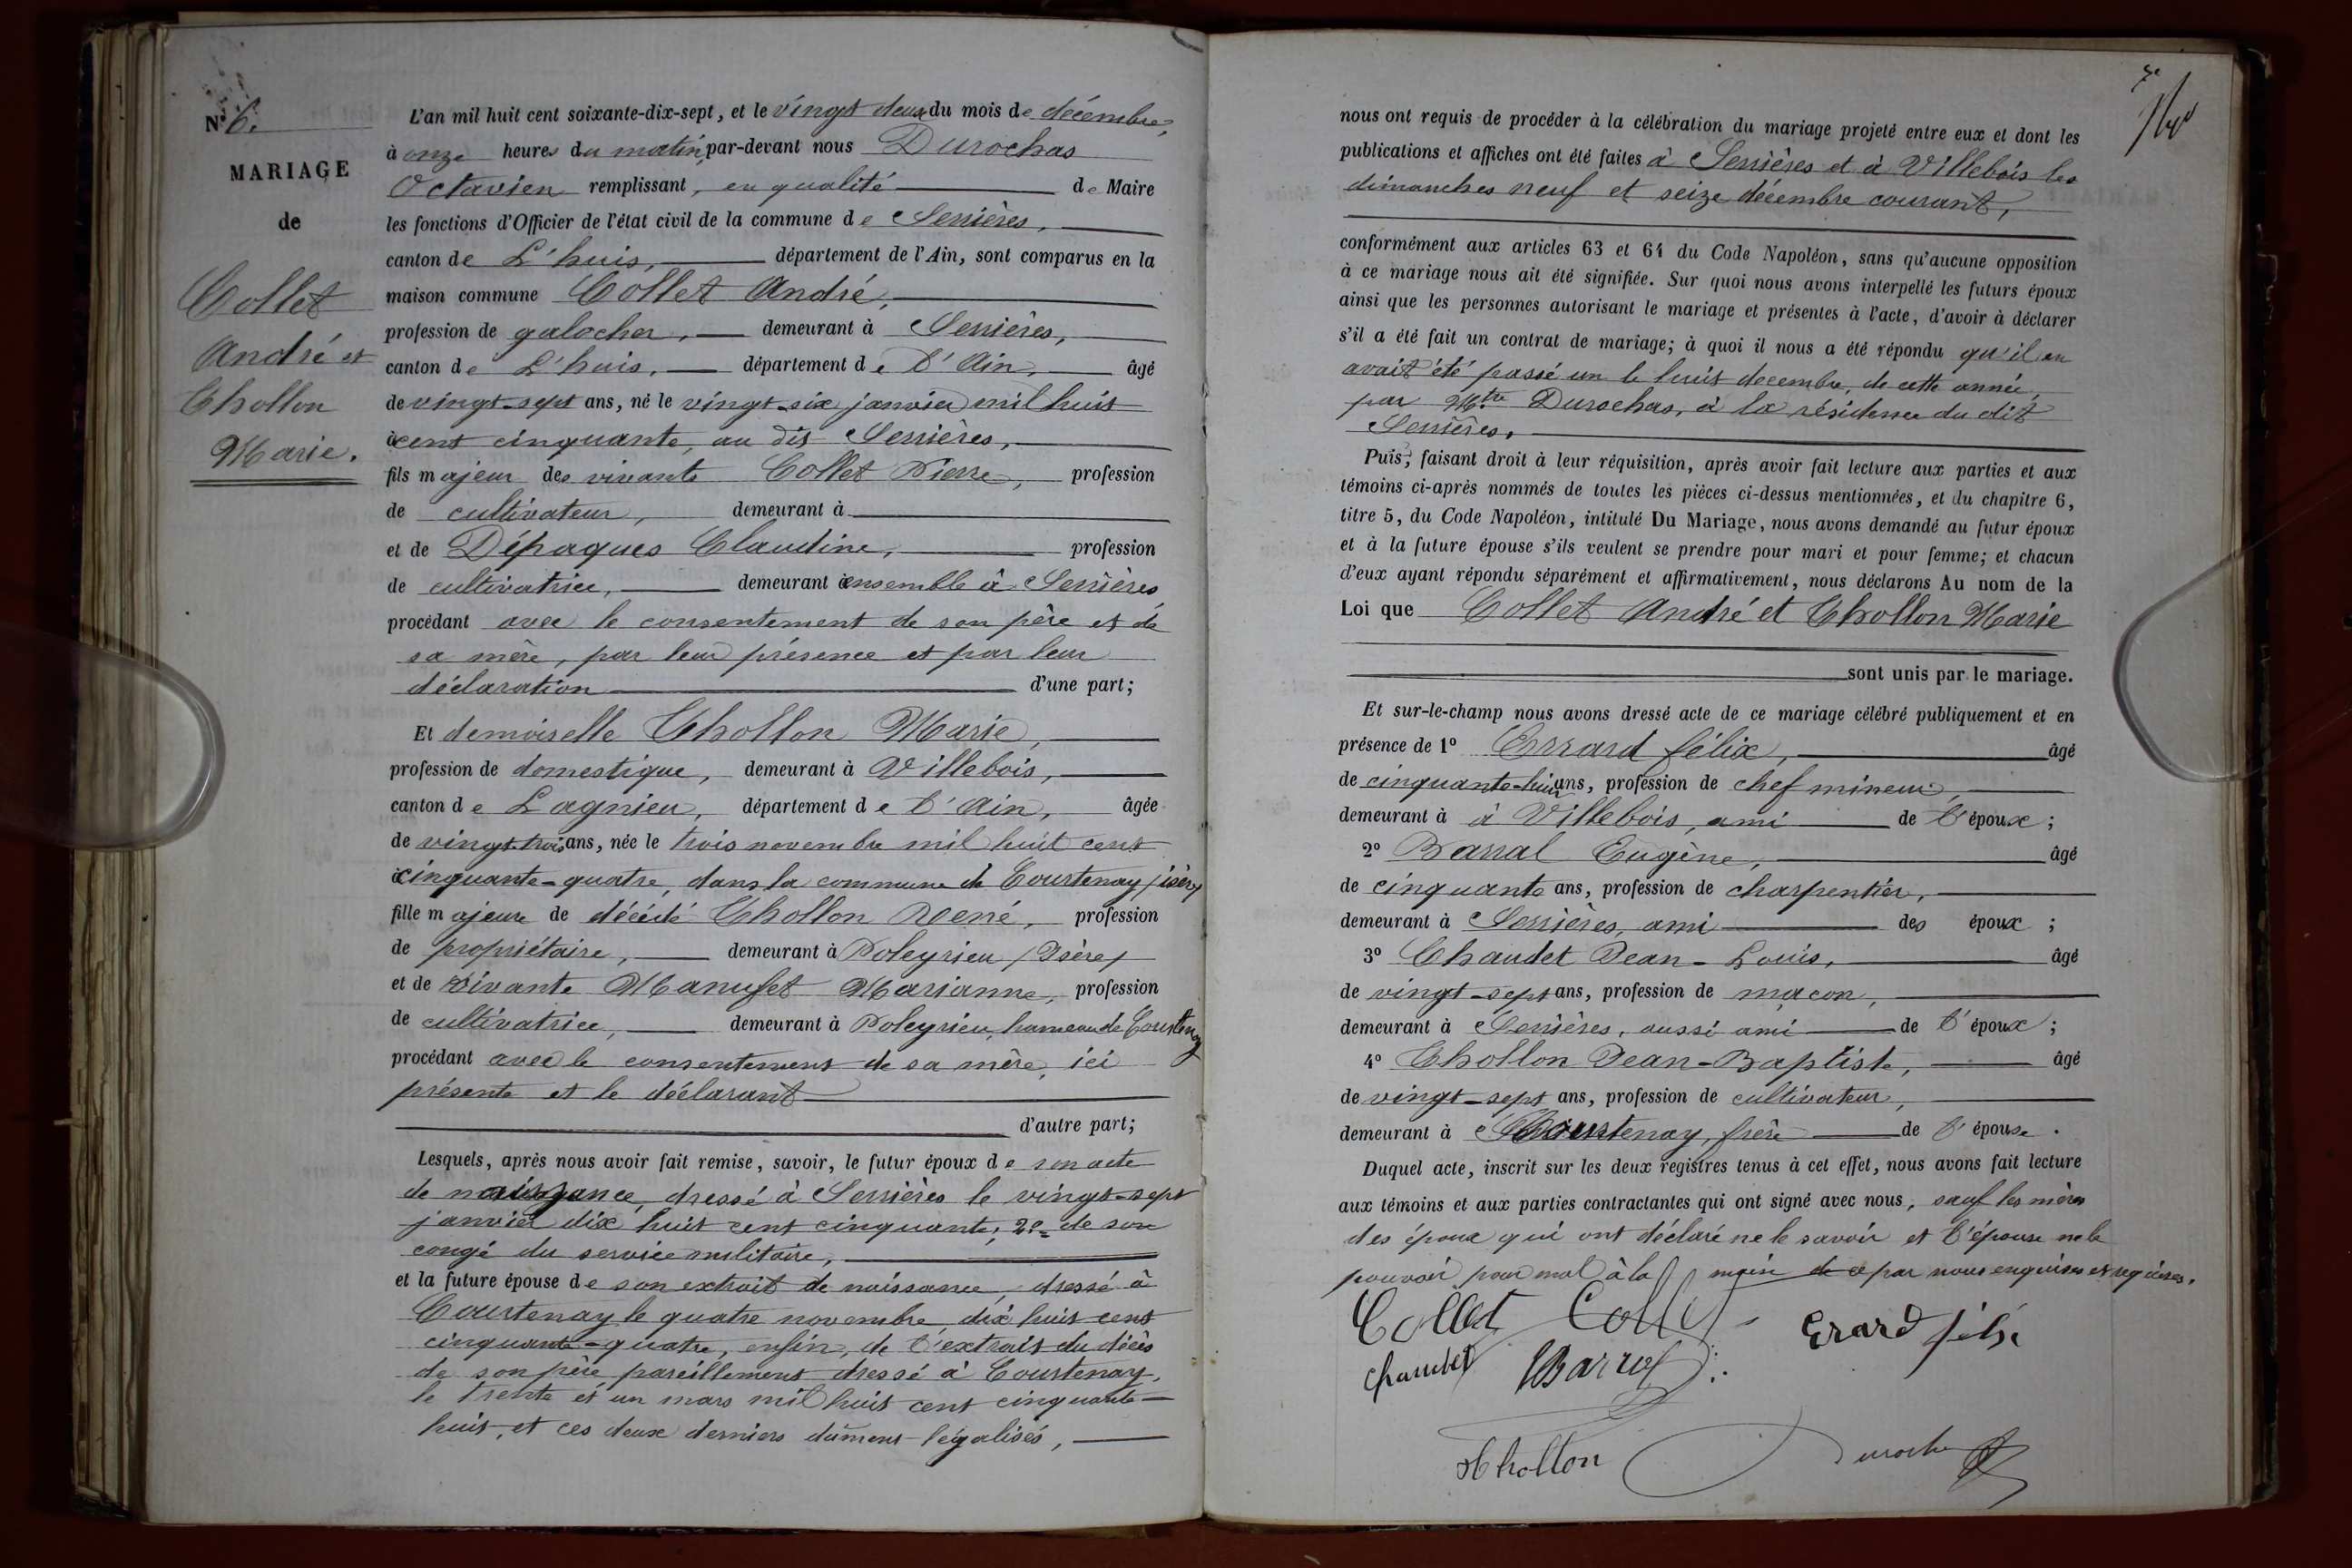 N° 6.
MARIAGE
de
Collet
André et
Chollon
Marie.
L'an mil huit cent soixante-dix-sept, et le vingt deux du mois de décembre,
à onze heures du matin, par-devant nous Durochas
Octavien remplissant, en qualité de Maire
les fonctions d'Officier de l'état civil de la commune de Serrières,
canton de L'huis, département de l'Ain, sont comparus en la
maison commune Collet André,
profession de galocher, demeurant à Serrières,
canton de L'huis, département de l'Ain, âgé
de vingt-sept ans, né le vingt-six janvier mil huit
à cent cinquante, au dit Serrières,
fils majeur des vivants Collet Pierre, profession
de cultivateur, demeurant à
et de Dépagues Claudine, profession
de cultivatrice, demeurant ensemble à Serrières
procédant avec le consentement de son père et de
sa mère, par leur présence et par leur
déclaration d'une part;
Et demoiselle Chollon Marie,
profession de domestique, demeurant à Villebois,
canton de Lagnieu, département de l'Ain, âgée
de vingt-trois ans, née le trois novembre mil huit cent
à cinquante-quatre, dans la commune de Courtenay /isère/
fille majeure de décédé Chollon René, profession
de propriétaire, demeurant à Poleyrieu /Isère/
et de vivante Manufet Marianne, profession
de cultivatrice, demeurant à Poleyrieu, hameau de Courtenay
procédant avec le consentement de sa mère, ici
présente et le déclarant
d'autre part;
Lesquels, après nous avoir fait remise, savoir, le futur époux de son acte
de naissance, dressé à Serrières le vingt-sept
janvier dix huit cent cinquante; 2° de son
congé du service militaire,
et la future épouse de son extrait de naissance, dressé à
Courtenay le quatre novembre dix huit cent
cinquante-quatre, enfin, de l'extrait du décès
de son père pareillement dressé à Courtenay,
le trente et un mars mil huit cent cinquante-
huit, et ces deux derniers dûment légalisés,
nous ont requis de procéder à la célébration du mariage projeté entre eux et dont les
publications et affiches ont été faites à Serrières et à Villebois les
dimanches neuf et seize décembre courant,
conformément aux articles 63 et 64 du Code Napoléon, sans qu'aucune opposition
à ce mariage nous ait été signifiée. Sur quoi nous avons interpellé les futurs époux
ainsi que les personnes autorisant le mariage et présentes à l'acte, d'avoir à déclarer
s'il a été fait un contrat de mariage; à quoi il nous a été répondu qu'il en
avait été passé un le huit decembre, de cette année,
par Mtre Durochas, à la résidence du dit
Serrières.
Puis, faisant droit à leur réquisition, après avoir fait lecture aux parties et aux
témoins ci-après nommés de toutes les pièces ci-dessus mentionnées, et du chapitre 6,
titre 5, du Code Napoléon, intitulé Du Mariage, nous avons demandé au futur époux
et à la future épouse s'ils veulent se prendre pour mari et pour femme; et chacun
d'eux ayant répondu séparément et affirmativement, nous déclarons Au nom de la
Loi que Collet André et Chollon Marie
sont unis par le mariage.
Et sur-le-champ nous avons dressé acte de ce mariage célébré publiquement et en
présence de 1° Errard félix, âgé
de cinquante-huit ans, profession de chef mineur,
demeurant à à Villebois, ami de l'époux;
2° Barral Eugène, âgé
de cinquante ans, profession de charpentier,
demeurant à Serrières, ami des époux;
3° Chaudet Jean-Louis, âgé
de vingt-sept ans, profession de maçon,
demeurant à Serrières, aussi ami de l'époux;
4° Chollon Jean-Baptiste, âgé
de vingt-sept ans, profession de cultivateur,
demeurant à Courtenay, frère de l'épouse.
Duquel acte, inscrit sur les deux registres tenus à cet effet, nous avons fait lecture
aux témoins et aux parties contractantes qui ont signé avec nous, sauf les mères
des époux qui ont déclaré ne le savoir et l'épouse ne le
pouvoir pour mal à la main de ce par nous enquises et requises.
Collet Collet Erard félix
Chaudet Barral
Chollon Durochas